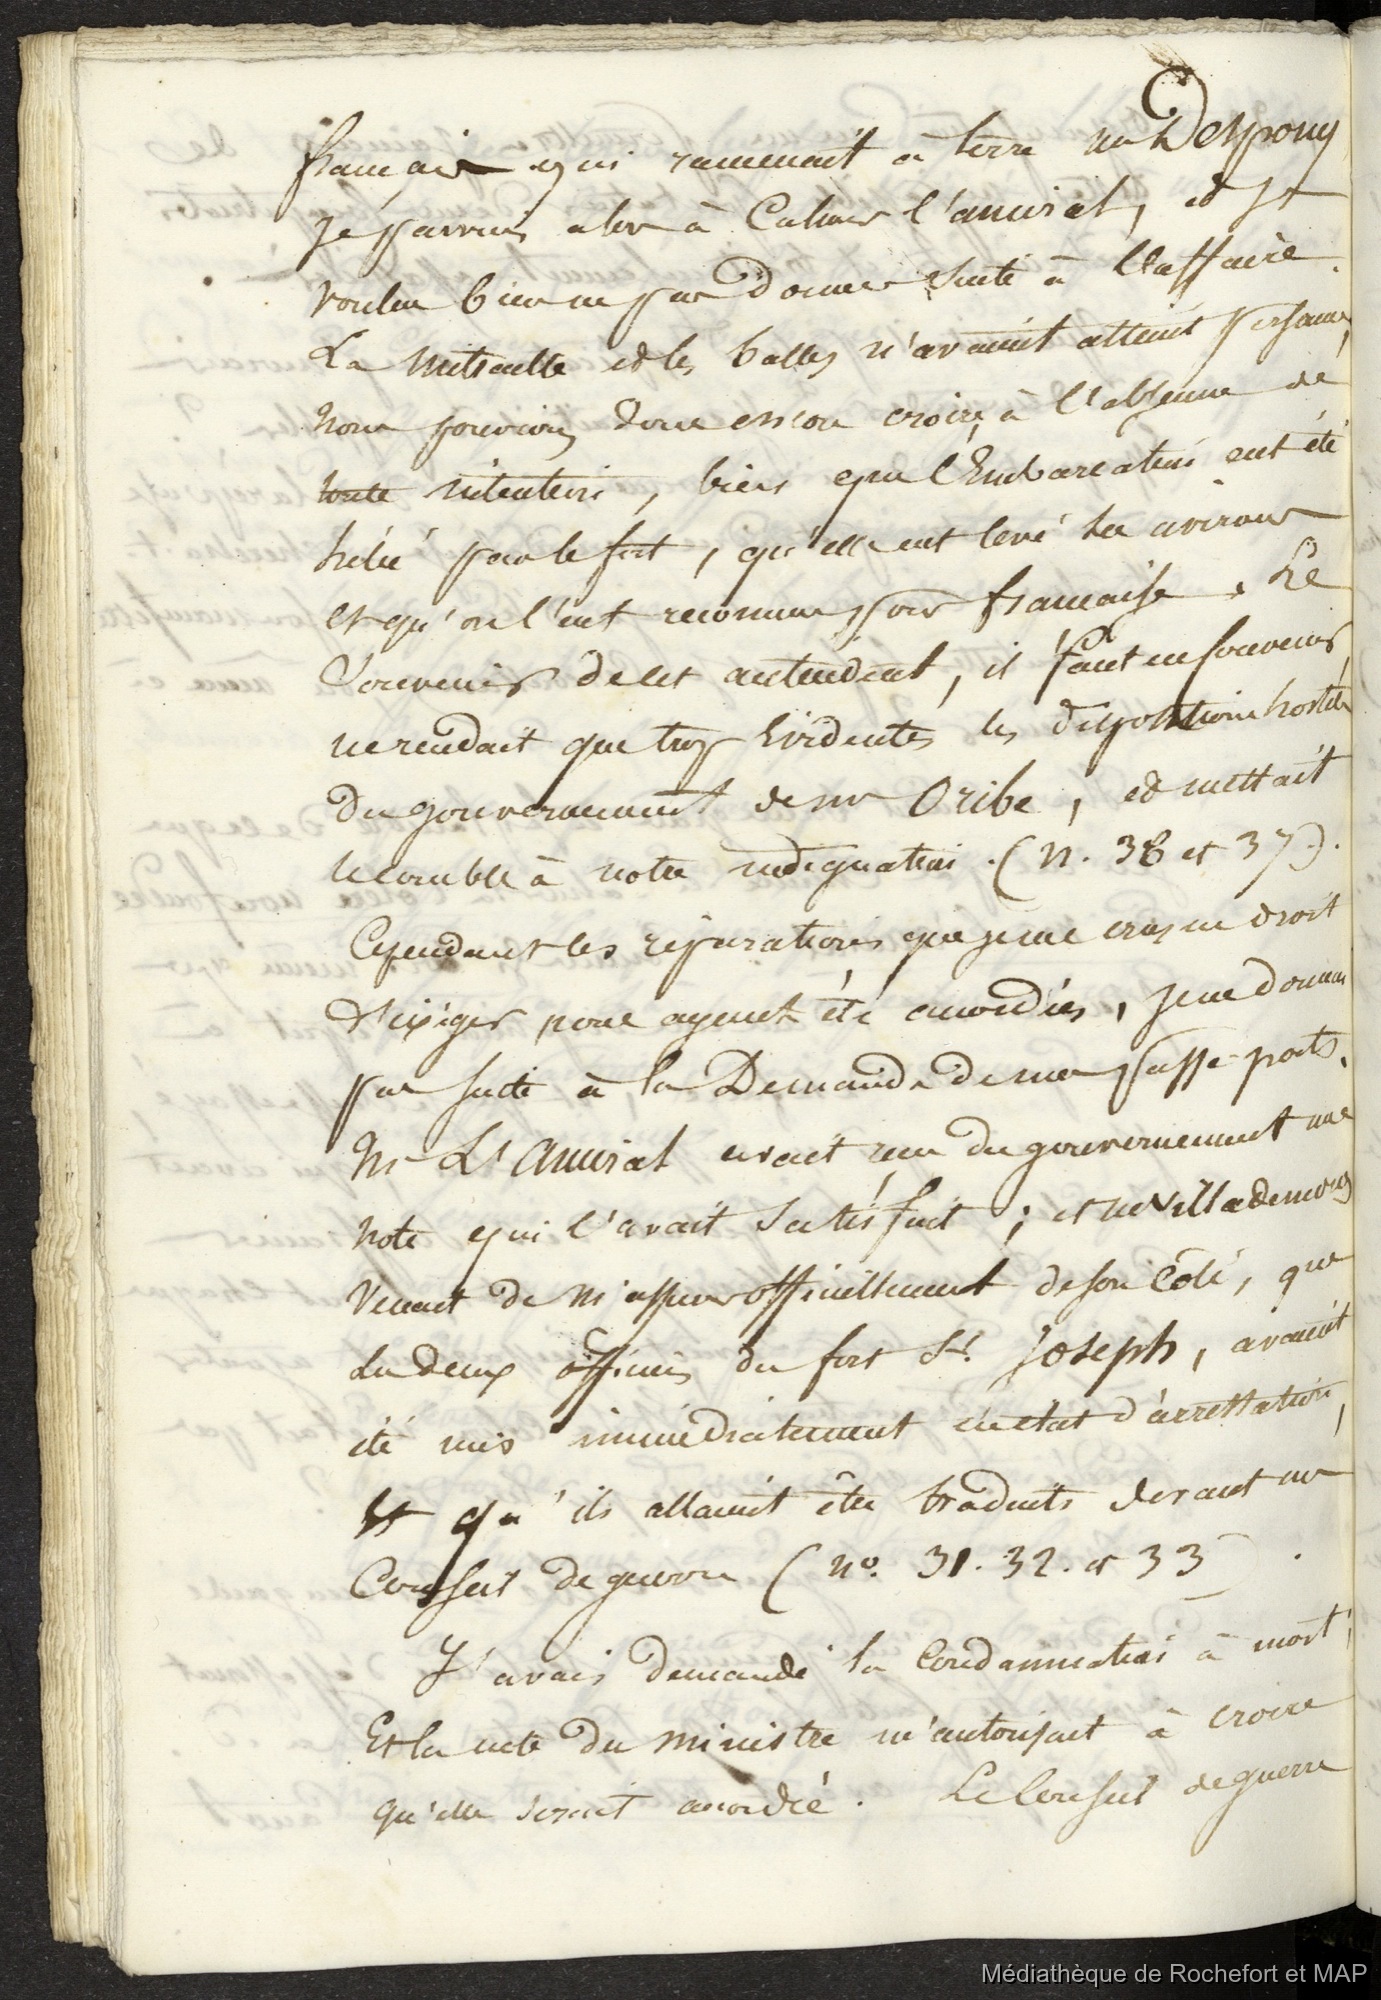 français qui ramenait à terre un Despouy
je parvins alors à calmer l'amiral, et il
voulut bien ne pas donner suite à l'affaire.
La mitraille et les balles n'avaient atteint personne,
nous pouvions donc encore croire à l'absence de
toute intention, bien que l'Embarcation eut été
hélée par le fort, qu'elle eut levé les avirons
et qu'on l'eut reconnue pour française. Le
Souvenir de cet antécédent, il faut en souvenir,
ne rendait que trop évidentes les dispositions hostiles
du gouvernement de mr Oribe, et mettait
le comble à notre indignation. (N. 36 et 37).
Cependant les réparations que je me crus en droit
d'exiger nous ayant été accordées, je ne donnai
pas suite à la Demande de mes passe-ports.
Mr L'Amiral avait reçu du gouvernement une
note qui l'avait satisfait; et mr Villademoros
venait de m'assurer officiellement de son Côté, que
les deux officiers du fort St. Joseph, avaient
été mis immédiatement en état d'arrestation,
et qu'ils allaient être traduits devant un
Conseil de guerre (no. 31. 32. et 33).
J'avais demandé la Condamnation à mort,
Et la note du Ministre m'autorisait à croire
qu'elle serait accordée. Le Conseil de guerre
Médiathèque de Rochefort et MAP